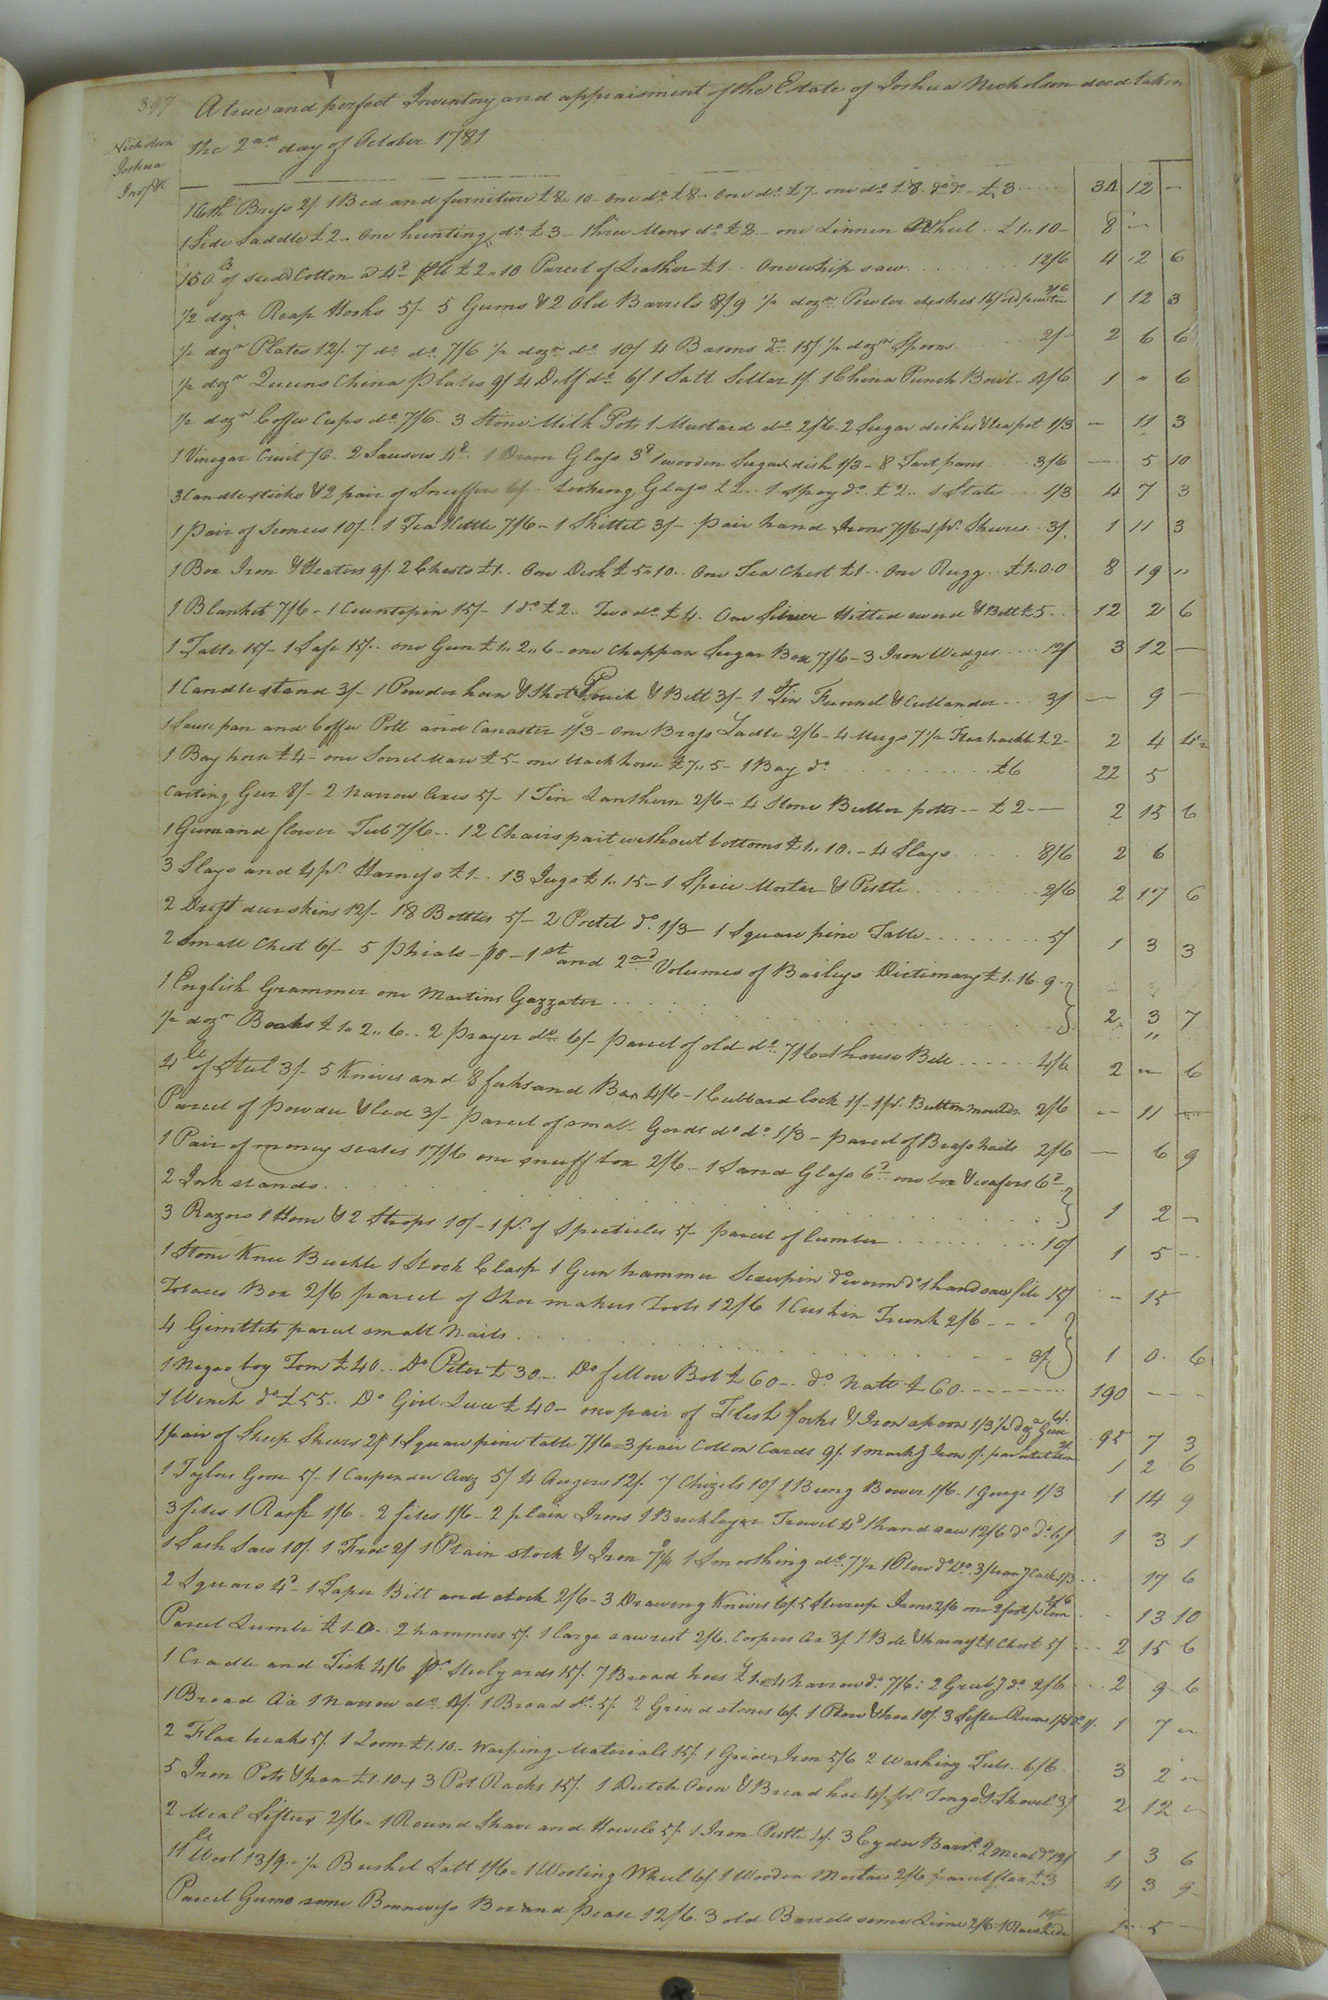 397
A true and perfect Inventory and appraisment of the Estate of Joshua Nicholson deced taken
Nicholson
Joshua
the 2nd day of October 1781
16th Brass 2/. 1 Bed and furniture £8. 10 - One do £8 - One do £7 - one do £8. do do - £3 34 12 -
1 Side Saddle £2 - One hunting do £3 - three Mens do £3 - one Linnen Wheel - £1. 10 - 8 " -
150 of seed Cotton @ 4d £2.. 10 Parcel of Leather £1.. One whip saw 12/6 4 2 6
1/2 dozn Reap Hooks 5/- 5 Gums & 2 Old Barrels 8/9 1/2 dozn Pewter dishes 16/ old pewter 3/6 1 12 3
1/2 dozn Plates 12/. 7 do do 7/6 1/2 dozn do 10/ 4 Basons do 15/ 1/2 dozn Spoons 2/- 2 6 6
1/2 dozn Queens China Plates 9/ 4 Delf do 6/ 1 Salt Sellar 1/. 1 China Punch Bowl - 4/6 1 " 6
1/2 dozn Coffee Cups do 7/6. 3 Stone Milk Pots 1 Mustard do 2/6. 2 Sugar dishes & tea pot 1/3 - 11 3
1 Vinegar Cruit /6. 2 Sausers 4d. 1 Dram Glass 3d 1 wooden Sugar dish 1/3 - 8 Tart pans 3/6 - 5 10
3 Candlesticks & 2 pair of Snuffers 6/. Looking Glass £2.. 1 Spey do £2.. 1 State 1/3 4 7 3
1 Pair of 10/. 1 Tea Kettle 7/6 - 1 Skittet 3/- pair hand Irons 7/6 1 pr. Sheres. 3/. 1 11 3
1 Box Iron & Heaters 9/. 2 Chests £1.. One Desk £5. 10.. One Tea Chest £1.. One Rugg.. £1.0.0 8 19 "
1 Blanket 7/6 - 1 Countopin 15/- 1 do £2.. Two do £4. One Silver Hilted sword & Belt £5.. 12 2 6
1 Table 15/- 1 Safe 15/.- one Gun £1.. 2.. 6 - one Chappan Sugar Box 7/6 - 3 Iron Wedges 12/ 3 12 -
1 Candle stand 3/- 1 Powder horn & Shot Pouch & Belt 3/- 1 Tin Funnel & Cullander 3/ - 9 -
1 Sauce pan and Coffee Pott and Canaster 1/3 - One Brass Ladle 2/6 - 4 Mugs 7 1/2 Flax hackle £2 - 2 4 4 1/2
1 Bay horse £4 - one Sorrel Mare £5 - one black horse £7.. 5 - 1 Bay do £6 22 5
Carting Gear 8/- 2 Narrow Axes 5/- 1 Tin Lanthern 2/6 - 4 Stone Butter potts - £2 - - 2 15 6
1 Gum and flower Tub 7/6.. 12 Chairs part without bottoms £1.. 10. - 4 Slays 8/6 2 6
3 Slays and 4 pr. Harness £1.. 13 Jugs £1.. 15 - 1 Spice Mortar & Pestle 2/6 2 17 6
2 Drest deerskins 12/- 18 Bottles 5/- 2 Pottel do. 1/3 - 1 Square pine Table 5/ 1 3 3
2 small Chest 6/- 5 Phials - /10 - 1st and 2nd Volumes of Baileys Dictionary £1.. 16. 9
1 English Grammer one Martins Gazzater 2 3 7
1/2 dozn Books £1. 2.. 6.. 2 prayer do 6/- parcel of old do. 7/6 1 house Bell 4/6 2 " 6
4 le of Steel 3/- 5 Knives and 8 forks and Box 4/6 - 1 Cubbard lock 1/- 1 pr. Button moulds 2/6 - 11 -
Parcel of Powder & Led 3/- parcel of small Goods do do 1/3 - parcel of Brass nails 2/6 - 6 9
1 Pair of money scales 17/6 one snuff box 2/6 - 1 Sand Glass 6d one box & wafers 6d
2 Ink stands 1 2 -
3 Razors 1 Hone & 2 Strops 10/- 1 pr. of Specticles 5/- parcel of lumber 10/ 1 5 -
1 Stone Knee Buckle 1 Stock Clasp 1 Gun hammer Scrupin do worm do 1 hand saw file 15/ - 15
Tobacco Box 2/6 parcel of Shoe makers Tools 12/6 1 Cushin Trunk 2/6
4 Gimtlets parcel small Nails 3/ 1 0 6
1 Negro boy Tom £40.. Do Peter £30.. Do fellow Bob £60.. do. Natt £60 190 - - -
1 Winch do £55.. Do Girl Luce £40 - one pair of Flesh forks & Iron spoon 1/3 95 7 3
1 pair of Sheep Shears 2/ 1 Square pine table 7/6 3 pair Cotton Cards 9/. 1 markg Iron 1/. 1 2 6
1 Taylors Goose 5/- 1 Carpenders Adz 5/ 4 Augers 12/. 7 Chizels 10/ 1 Bung Bower 1/6. 1 Gouge 1/3 1 14 9
3 files 1 Rasp 1/6 - 2 files 1/6 - 2 plain Irons 1 Bricklayer Trowel 4d 1 hand saw 12/6 do do. 6/ 1 3 1
1 Sash Saw 10/. 1 Froe 2/ 1 Plain stock & Iron 7 1/2 1 Smoothing do. 7 1/2 1 Plow do 3/ 17 6
2 Squars 4d - 1 Taper Bitt and stock 2/6 - 3 Drawing Knives 6/. 5 Sturrup Irons 2/6 13 10
Parcel Lumber £1.0.. 2 hammers 5/. 1 large saw rest 2/6. Coopers Ax 3/ 1 Bell & harness £1 Chest 5/ 2 15 6
1 Cradle and Tick 4/6 pr. Steelyards 15/. 7 Broad hoes £1. 4 narrow do 7/6: 2 Grubg do 2/6 2 9 6
1 Broad Ax 1 Narrow do. 1 Broad do. 5/. 2 Grind stones 6/. 1 Plow & hoe 10/. 3 Sifter 1 7 "
2 Flax breaks 5/. 1 Loom £1.10 - Warping Materials 15/. 1 Grid Iron 5/6 2 Washing Tubs. 6/6 3 2 "
5 Iron Pots & pan £1.10 3 Pot Racks 15/. 1 Dutch Oven & Bread hoe 4/. pr. Tongs & Shovel 3/ 2 12 "
2 Meal Sifters 2/6 - 1 Round Shave and Howels 5/. 1 Iron Pestle 4/. 3 Cyder Barrs. 2 meal do 12/ 1 3 6
11 le Wool 13/9 - 1/2 Bushel Salt 1/6 - 1 Wooling Wheel 6/ 1 Wooden Mortar 2/6 parcel flax £3 4 3 9
Parcel Gums some Bonnevess Box and pease 12/6. 3 old Barrels some Lime 2/6 1 5 -